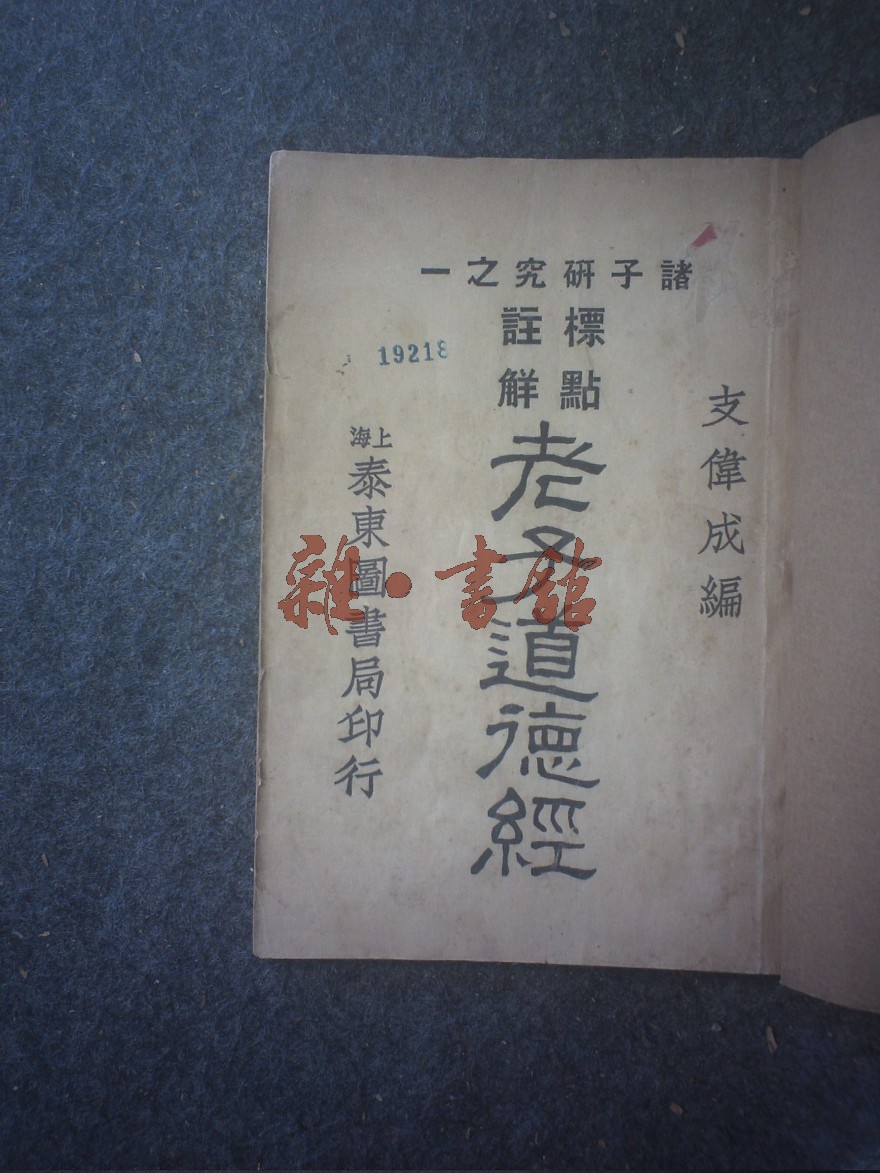 諸子研究之一
標點
註解
老子道德經
支偉成編
上海
泰東圖書局印行
19218
雜·書館